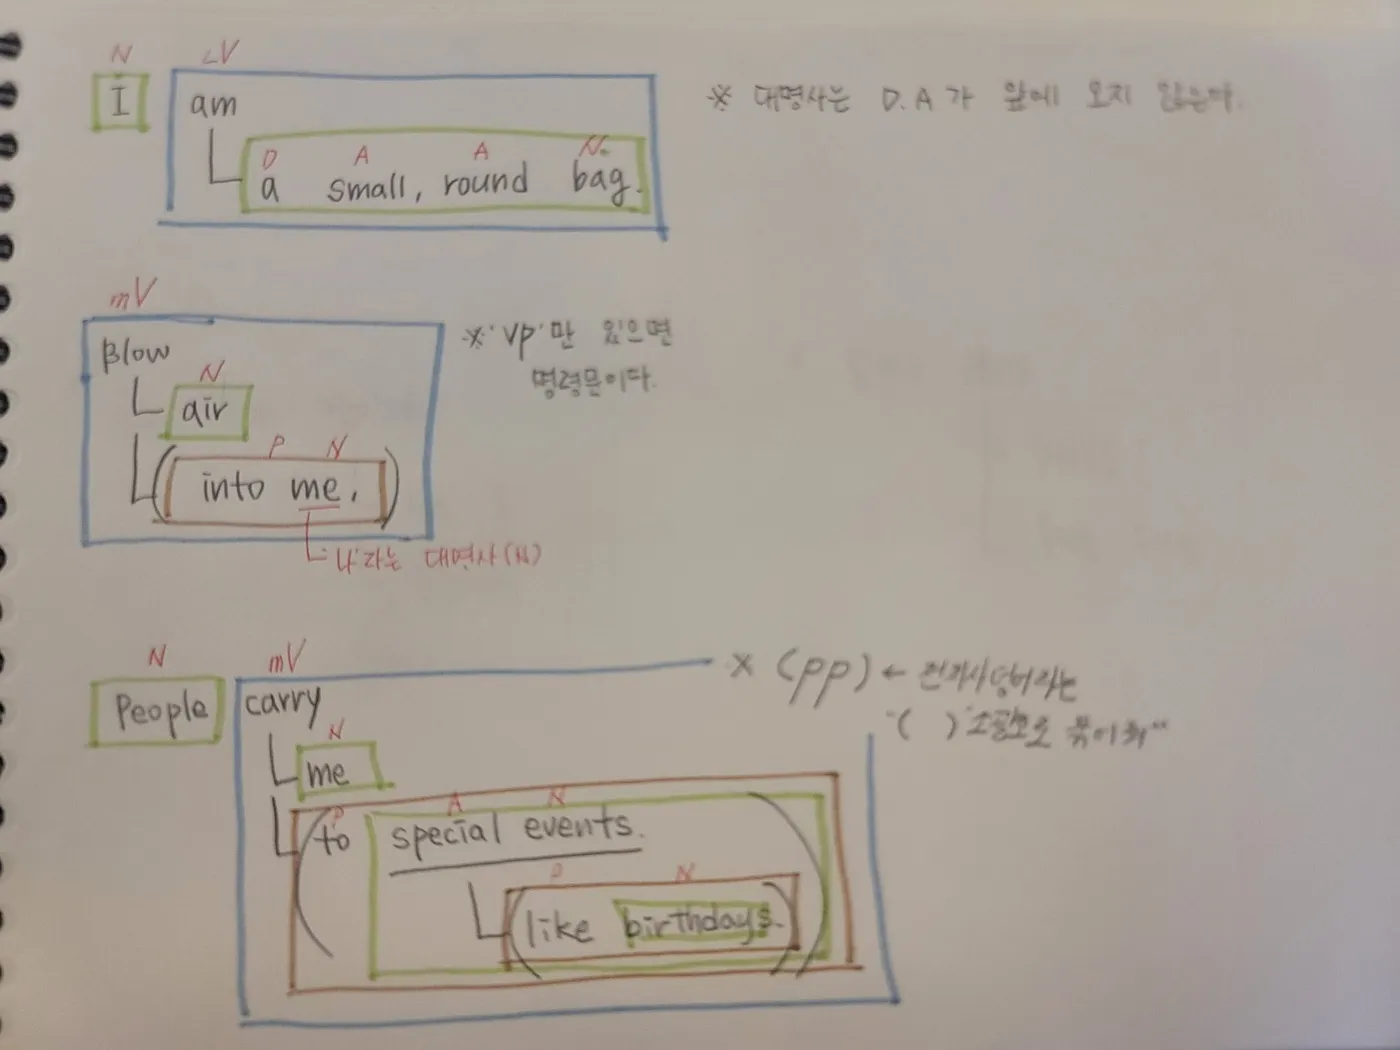 N LV
I am ※ 대명사는 D.A가 앞에 오지 않는다.
D A A N.
a small, round bag.
mV
Blow ※ 'VP'만 있으면
명령문이다.
N
air
P N
into me.
'나'라는 대명사(N)
N mV
People carry ※ (PP) ← 전치사덩어리는
"( )"소괄호로 묶이
N
me
P A N
to special events.
P N
(like birthdays.)